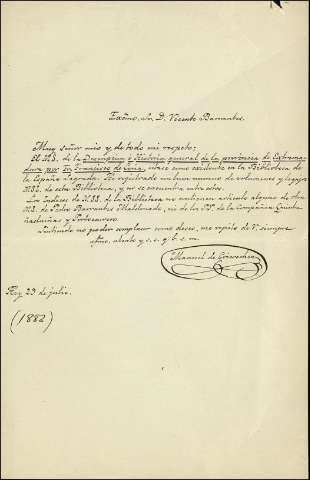 Excmo. Sr. D. Vicente Barrantes
Muy señor mio y de todo mi respeto:
El MS. de la Descripcion e Historia general de la provincia de Extrema
dura por Fr. Francisco de Coria, existente en la Biblioteca de
la España Sagrada. He registrado un buen numero de volumenes y legajos
MSS. de esta Biblioteca, y no se encuentra entre ellos.
Los Indices de MSS. de la Biblioteca no contienen articulo alguno de
MS. de Pedro Barrantes Maldonado, ni de los PP. de la Compañia
y Portocarrero.
Sintiendo no poder complacer como deseo, me repito de V. siempre
atmo. s. s. q. b. s. m.
Manuel de
Hoy 23 de julio.
(1882)